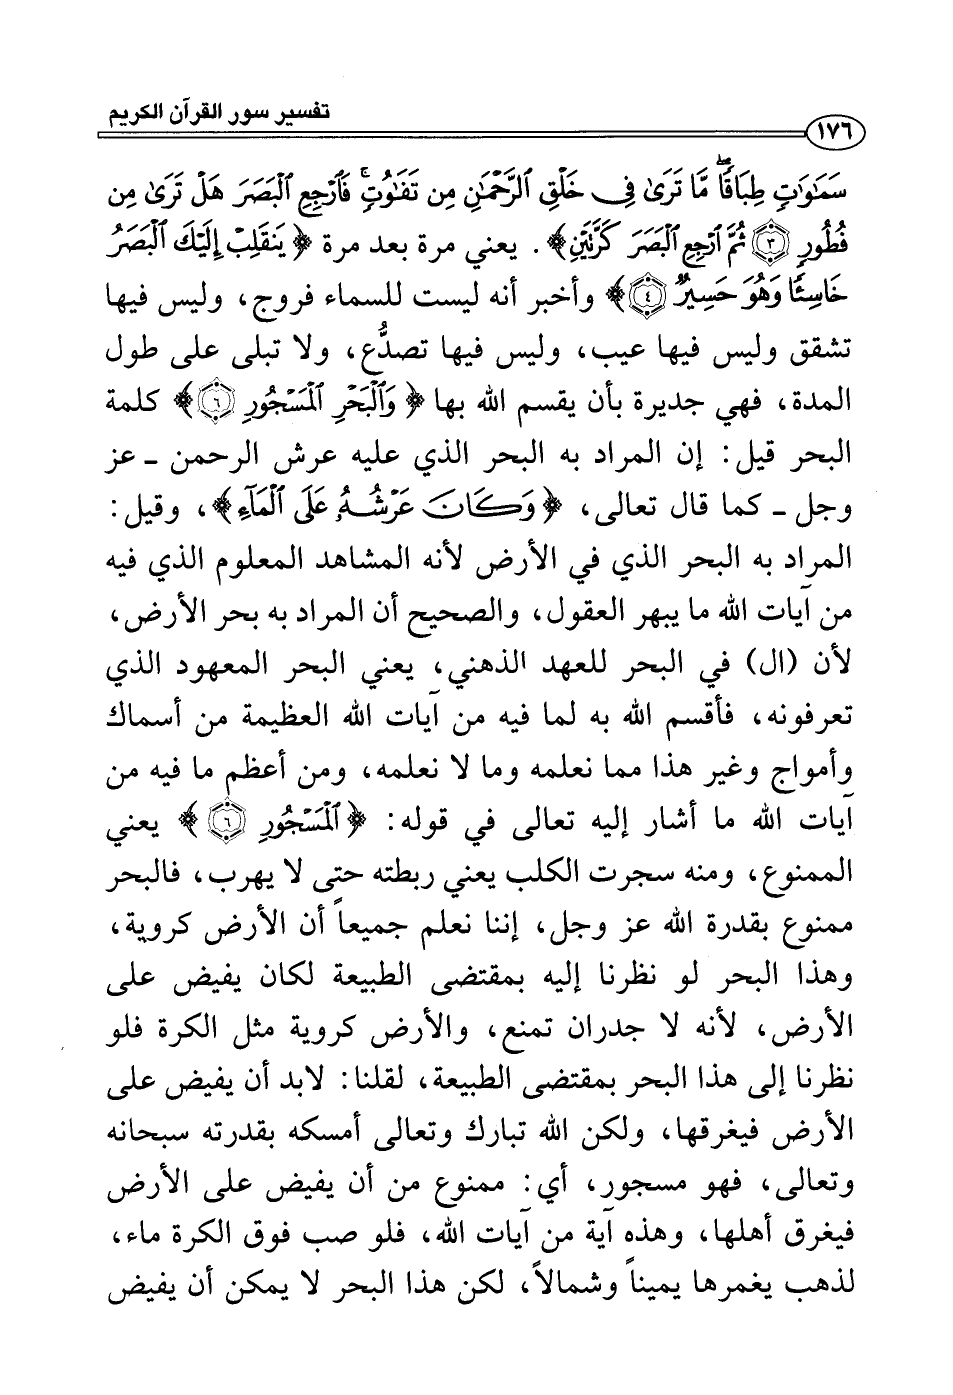 تفسير سور القرآن الكريم
١٧٦
سَمَٰوَٰتٍ طِبَاقًا ۖ مَّا تَرَىٰ فِى خَلْقِ ٱلرَّحْمَٰنِ مِن تَفَٰوُتٍ ۖ فَٱرْجِعِ ٱلْبَصَرَ هَلْ تَرَىٰ مِن
فُطُورٍ ﴿٣﴾ ثُمَّ ٱرْجِعِ ٱلْبَصَرَ كَرَّتَيْنِ﴾. يعني مرة بعد مرة ﴿يَنقَلِبْ إِلَيْكَ ٱلْبَصَرُ
خَاسِئًا وَهُوَ حَسِيرٌ ﴿٤﴾﴾ وأخبر أنه ليست للسماء فروج، وليس فيها
تشقق وليس فيها عيب، وليس فيها تصدُّع، ولا تبلى على طول
المدة، فهي جديرة بأن يقسم الله بها ﴿وَٱلْبَحْرِ ٱلْمَسْجُورِ ﴿٦﴾﴾ كلمة
البحر قيل: إن المراد به البحر الذي عليه عرش الرحمن ـ عز
وجل ـ كما قال تعالى، ﴿وَكَانَ عَرْشُهُۥ عَلَى ٱلْمَآءِ﴾، وقيل:
المراد به البحر الذي في الأرض لأنه المشاهد المعلوم الذي فيه
من آيات الله ما يبهر العقول، والصحيح أن المراد به بحر الأرض،
لأن (ال) في البحر للعهد الذهني، يعني البحر المعهود الذي
تعرفونه، فأقسم الله به لما فيه من آيات الله العظيمة من أسماك
وأمواج وغير هذا مما نعلمه وما لا نعلمه، ومن أعظم ما فيه من
آيات الله ما أشار إليه تعالى في قوله: ﴿ٱلْمَسْجُورِ ﴿٦﴾﴾ يعني
الممنوع، ومنه سجرت الكلب يعني ربطته حتى لا يهرب، فالبحر
ممنوع بقدرة الله عز وجل، إننا نعلم جميعاً أن الأرض كروية،
وهذا البحر لو نظرنا إليه بمقتضى الطبيعة لكان يفيض على
الأرض، لأنه لا جدران تمنع، والأرض كروية مثل الكرة فلو
نظرنا إلى هذا البحر بمقتضى الطبيعة، لقلنا: لابد أن يفيض على
الأرض فيغرقها، ولكن الله تبارك وتعالى أمسكه بقدرته سبحانه
وتعالى، فهو مسجور، أي: ممنوع من أن يفيض على الأرض
فيغرق أهلها، وهذه آية من آيات الله، فلو صب فوق الكرة ماء،
لذهب يغمرها يميناً وشمالاً، لكن هذا البحر لا يمكن أن يفيض